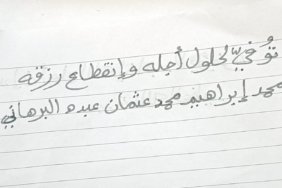 تُوفيّ لحلول أجله وإنقطاع رزقه
محمد إبراهيم محمد عثمان عبده البرهاني